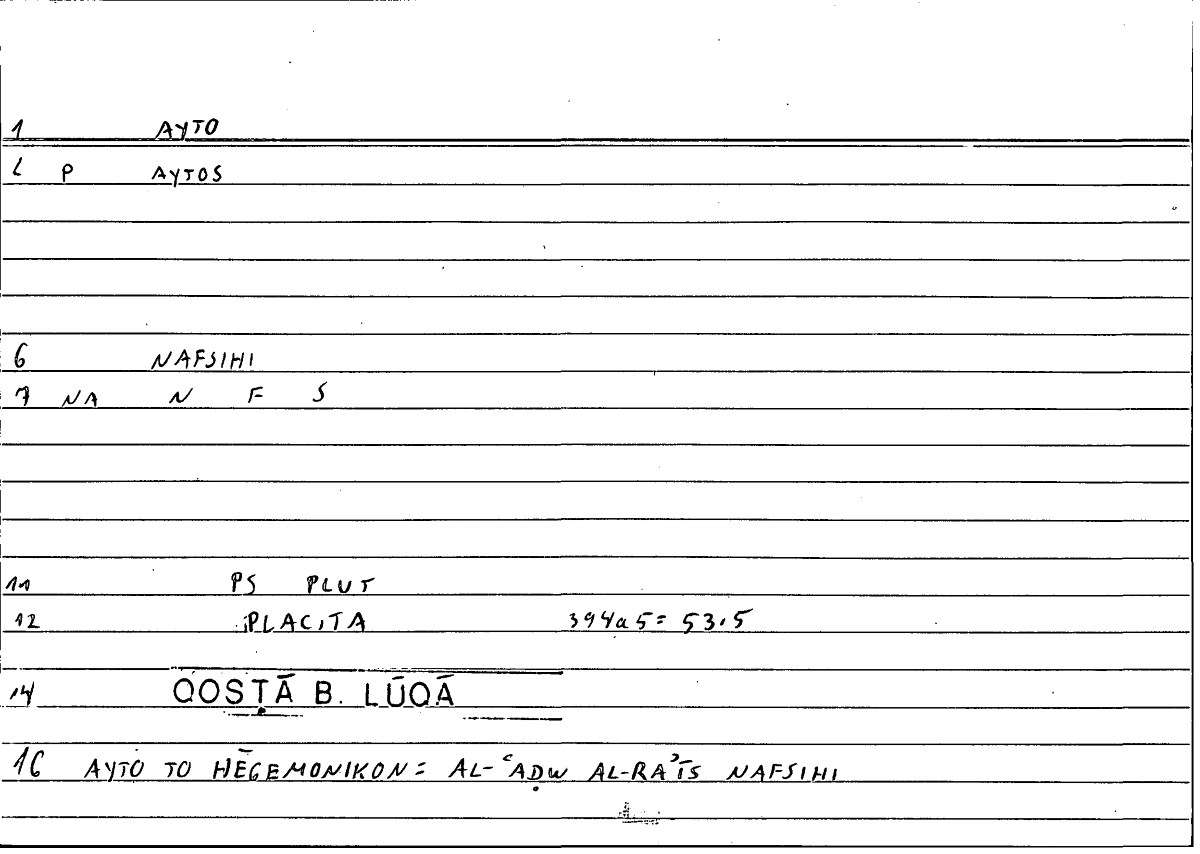 1 AYTO
2 P AYTOS
6 NAFSIHI
7 NA N F S
11 PS PLUT
12 PLACITA 394a5= 53.5
14 QOSṬĀ B. LŪQĀ
16 AYTO TO HĒGEMONIKON= AL-ʿAḌW AL-RAʾĪS NAFSIHI